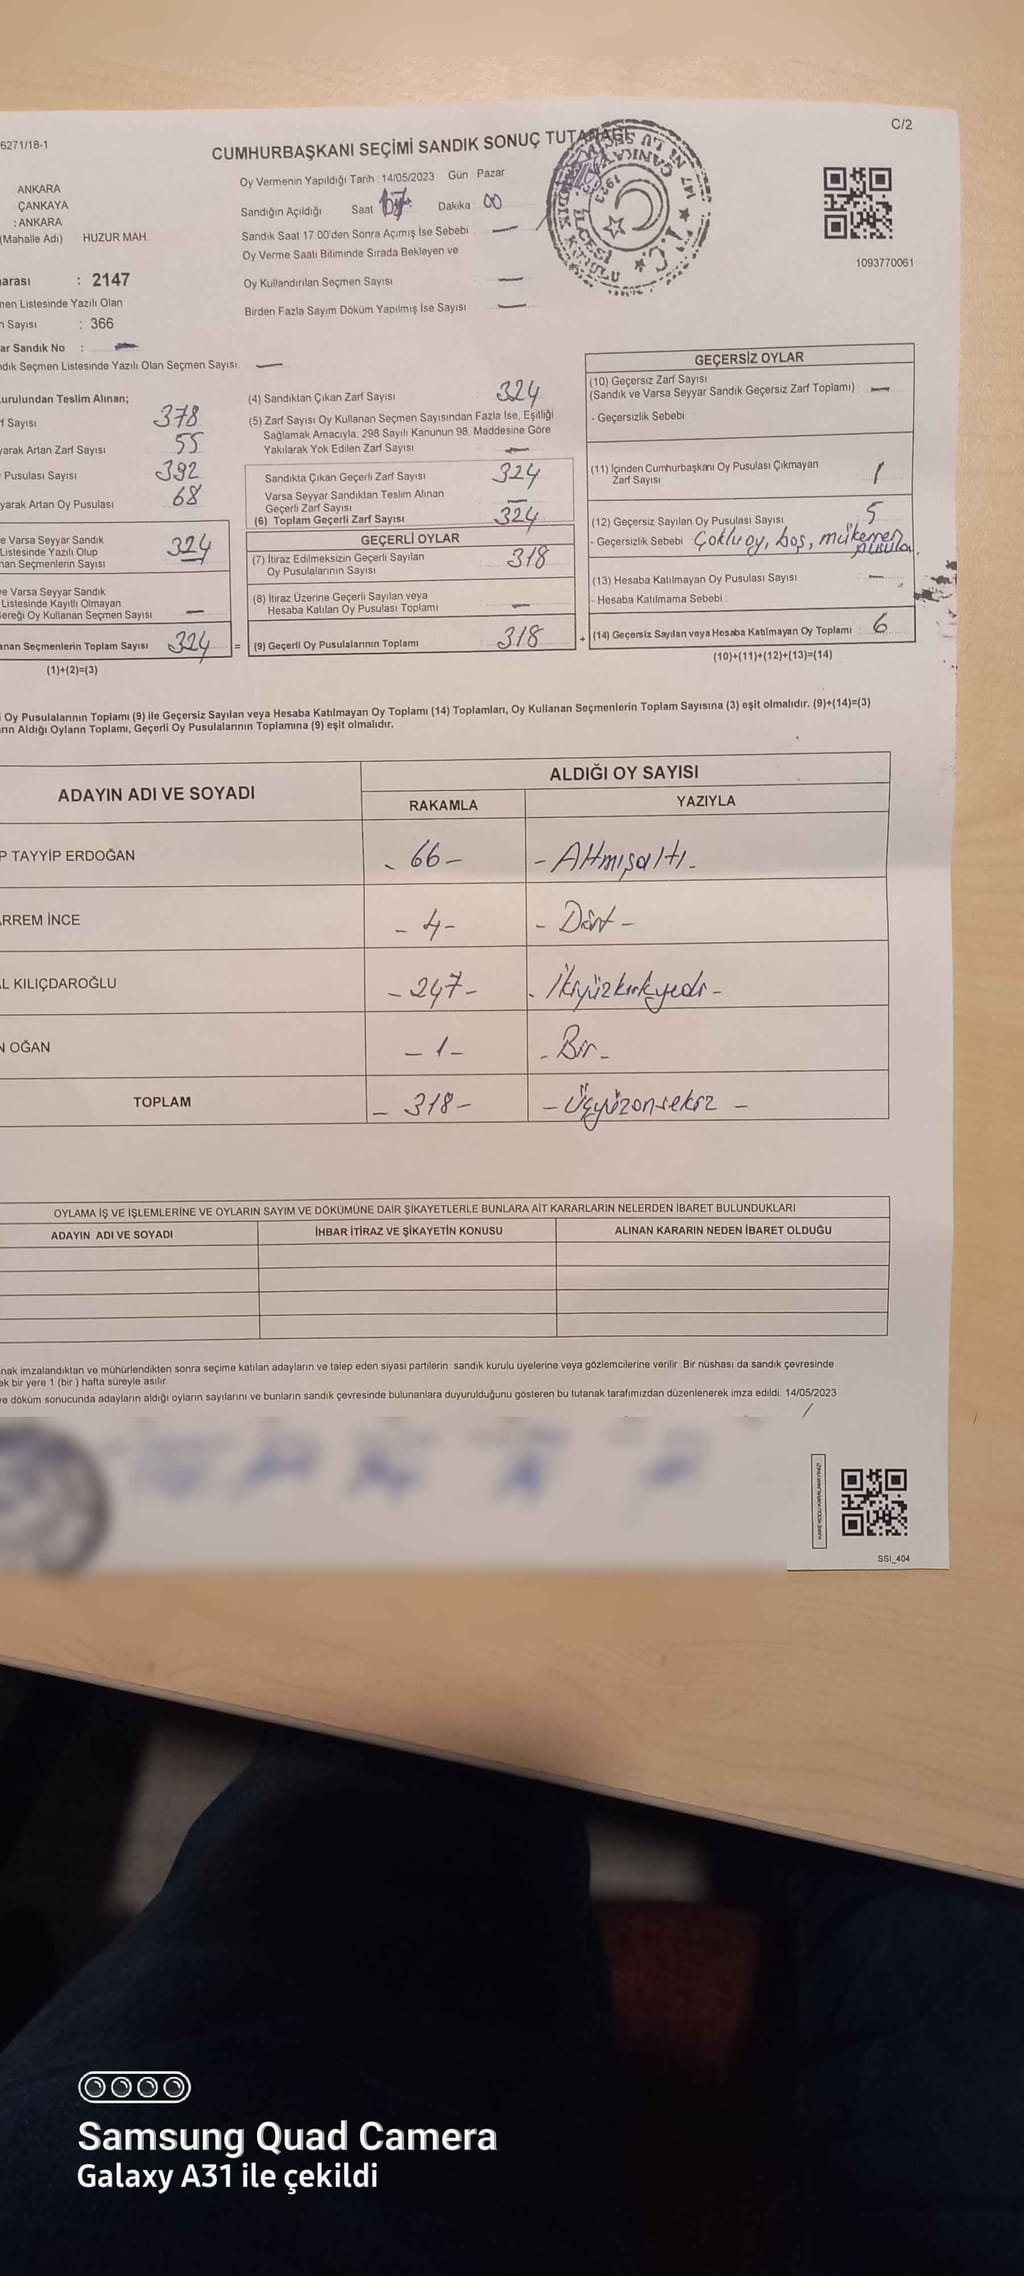 C/2
6271/18-1
CUMHURBAŞKANI SEÇİMİ SANDIK SONUÇ TUTANAĞI
ANKARA
ÇANKAYA
: ANKARA
(Mahalle Adı) HUZUR MAH.
arası : 2147
men Listesinde Yazılı Olan
n Sayısı : 366
ar Sandık No : —
ndık Seçmen Listesinde Yazılı Olan Seçmen Sayısı —
Oy Vermenin Yapıldığı Tarih : 14/05/2023 Gün Pazar
Sandığın Açıldığı Saat 17 Dakika 00
Sandık Saat 17.00'den Sonra Açımış İse Sebebi —
Oy Verme Saati Bitiminde Sırada Bekleyen ve
Oy Kullandırılan Seçmen Sayısı —
Birden Fazla Sayım Döküm Yapılmış İse Sayısı —
1923
T.C.
ÇANKAYA
İLÇESİ
SANDIK KURULU
1093770061
urulundan Teslim Alınan;
f Sayısı 378
yarak Artan Zarf Sayısı 55
Pusulası Sayısı 392
yarak Artan Oy Pusulası 68
e Varsa Seyyar Sandık
Listesinde Yazılı Olup
nan Seçmenlerin Sayısı 324
ve Varsa Seyyar Sandık
Listesinde Kayıtlı Olmayan
Gereği Oy Kullanan Seçmen Sayısı —
anan Seçmenlerin Toplam Sayısı 324 =
(1)+(2)=(3)
(4) Sandıktan Çıkan Zarf Sayısı 324
(5) Zarf Sayısı Oy Kullanan Seçmen Sayısından Fazla İse, Eşitliği
Sağlamak Amacıyla, 298 Sayılı Kanunun 98. Maddesine Göre
Yakılarak Yok Edilen Zarf Sayısı —
Sandıkta Çıkan Geçerli Zarf Sayısı 324
Varsa Seyyar Sandıktan Teslim Alınan
Geçerli Zarf Sayısı —
(6) Toplam Geçerli Zarf Sayısı 324
GEÇERLİ OYLAR
(7) İtiraz Edilmeksizin Geçerli Sayılan
Oy Pusulalarının Sayısı 318
(8) İtiraz Üzerine Geçerli Sayılan veya
Hesaba Katılan Oy Pusulası Toplamı —
(9) Geçerli Oy Pusulalarının Toplamı : 318 +
GEÇERSİZ OYLAR
(10) Geçersiz Zarf Sayısı
(Sandık ve Varsa Seyyar Sandık Geçersiz Zarf Toplamı) : —
- Geçersizlik Sebebi :
(11) İçinden Cumhurbaşkanı Oy Pusulası Çıkmayan
Zarf Sayısı 1
(12) Geçersiz Sayılan Oy Pusulası Sayısı 5
- Geçersizlik Sebebi Çoklu oy, boş, mükerrer
pusula.
(13) Hesaba Katılmayan Oy Pusulası Sayısı —
- Hesaba Katılmama Sebebi
(14) Geçersiz Sayılan veya Hesaba Katılmayan Oy Toplamı : 6
(10)+(11)+(12)+(13)=(14)
Oy Pusulalarının Toplamı (9) ile Geçersiz Sayılan veya Hesaba Katılmayan Oy Toplamı (14) Toplamları, Oy Kullanan Seçmenlerin Toplam Sayısına (3) eşit olmalıdır. (9)+(14)=(3)
rın Aldığı Oyların Toplamı, Geçerli Oy Pusulalarının Toplamına (9) eşit olmalıdır.
ADAYIN ADI VE SOYADI
ALDIĞI OY SAYISI
RAKAMLA YAZIYLA
P TAYYİP ERDOĞAN - 66 - - Altmışaltı -
ARREM İNCE - 4 - - Dört -
L KILIÇDAROĞLU - 247 - - İkiyüzkırkyedi -
N OĞAN - 1 - - Bir -
TOPLAM - 318 - - Üçyüzonsekiz -
OYLAMA İŞ VE İŞLEMLERİNE VE OYLARIN SAYIM VE DÖKÜMÜNE DAİR ŞİKAYETLERLE BUNLARA AİT KARARLARIN NELERDEN İBARET BULUNDUKLARI
ADAYIN ADI VE SOYADI İHBAR İTİRAZ VE ŞİKAYETİN KONUSU ALINAN KARARIN NEDEN İBARET OLDUĞU
anak imzalandıktan ve mühürlendikten sonra seçime katılan adayların ve talep eden siyasi partilerin sandık kurulu üyelerine veya gözlemcilerine verilir. Bir nüshası da sandık çevresinde
ek bir yere 1 (bir ) hafta süreyle asılır.
ve döküm sonucunda adayların aldığı oyların sayılarını ve bunların sandık çevresinde bulunanlara duyurulduğunu gösteren bu tutanak tarafımızdan düzenlenerek imza edildi. 14/05/2023
KARE KODU KARALAMAYINIZ!
SSI_404
Samsung Quad Camera
Galaxy A31 ile çekildi